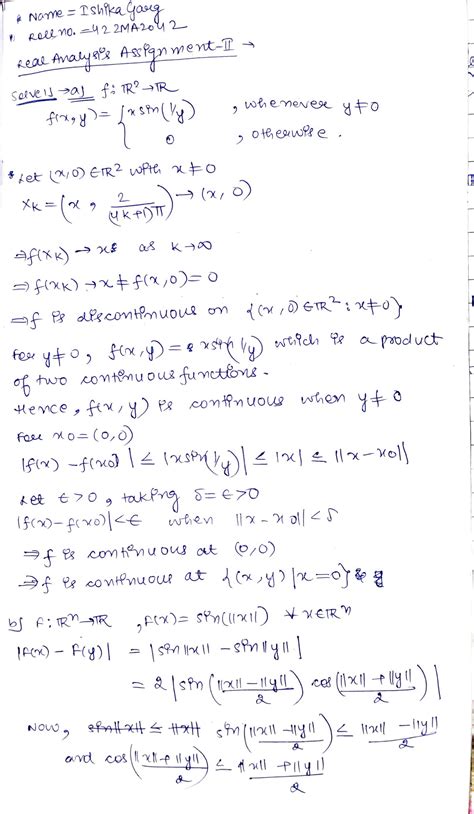 * Name = Ishika Garg
* Roll no. = 422MA2042
Real Analysis Assignment-II →
Solve 1) → a) f: ℝ² → ℝ
f(x,y) = { x sin(1/y) , whenever y≠0
0 , otherwise.
* Let (x,0) ∈ ℝ² with x≠0
X_K = (x, 2/((4K+1)π)) → (x,0)
⇒ f(X_K) → x as K→∞
⇒ f(X_K) → x ≠ f(x,0) = 0
⇒ f is discontinuous on {(x,0) ∈ ℝ² : x≠0}
For y≠0, f(x,y) = x sin(1/y) which is a product
of two continuous functions.
Hence, f(x,y) is continuous when y≠0
For x0 = (0,0)
|f(x) - f(x0)| ≤ |x sin(1/y)| ≤ |x| ≤ ||x-x0||
Let ϵ>0, taking δ=ϵ>0
|f(x)-f(x0)|<ϵ when ||x-x0||<δ
⇒ f is continuous at (0,0)
⇒ f is continuous at {(x,y)|x=0}
b) f: ℝⁿ→ℝ , f(x) = sin(||x||) ∀ x∈ℝⁿ
|f(x) - f(y)| = |sin||x|| - sin||y|||
= 2|sin((||x|| - ||y||)/2) cos((||x|| + ||y||)/2)|
Now, sin((||x|| - ||y||)/2) ≤ (||x|| - ||y||)/2
and cos((||x|| + ||y||)/2) ≤ (||x|| + ||y||)/2